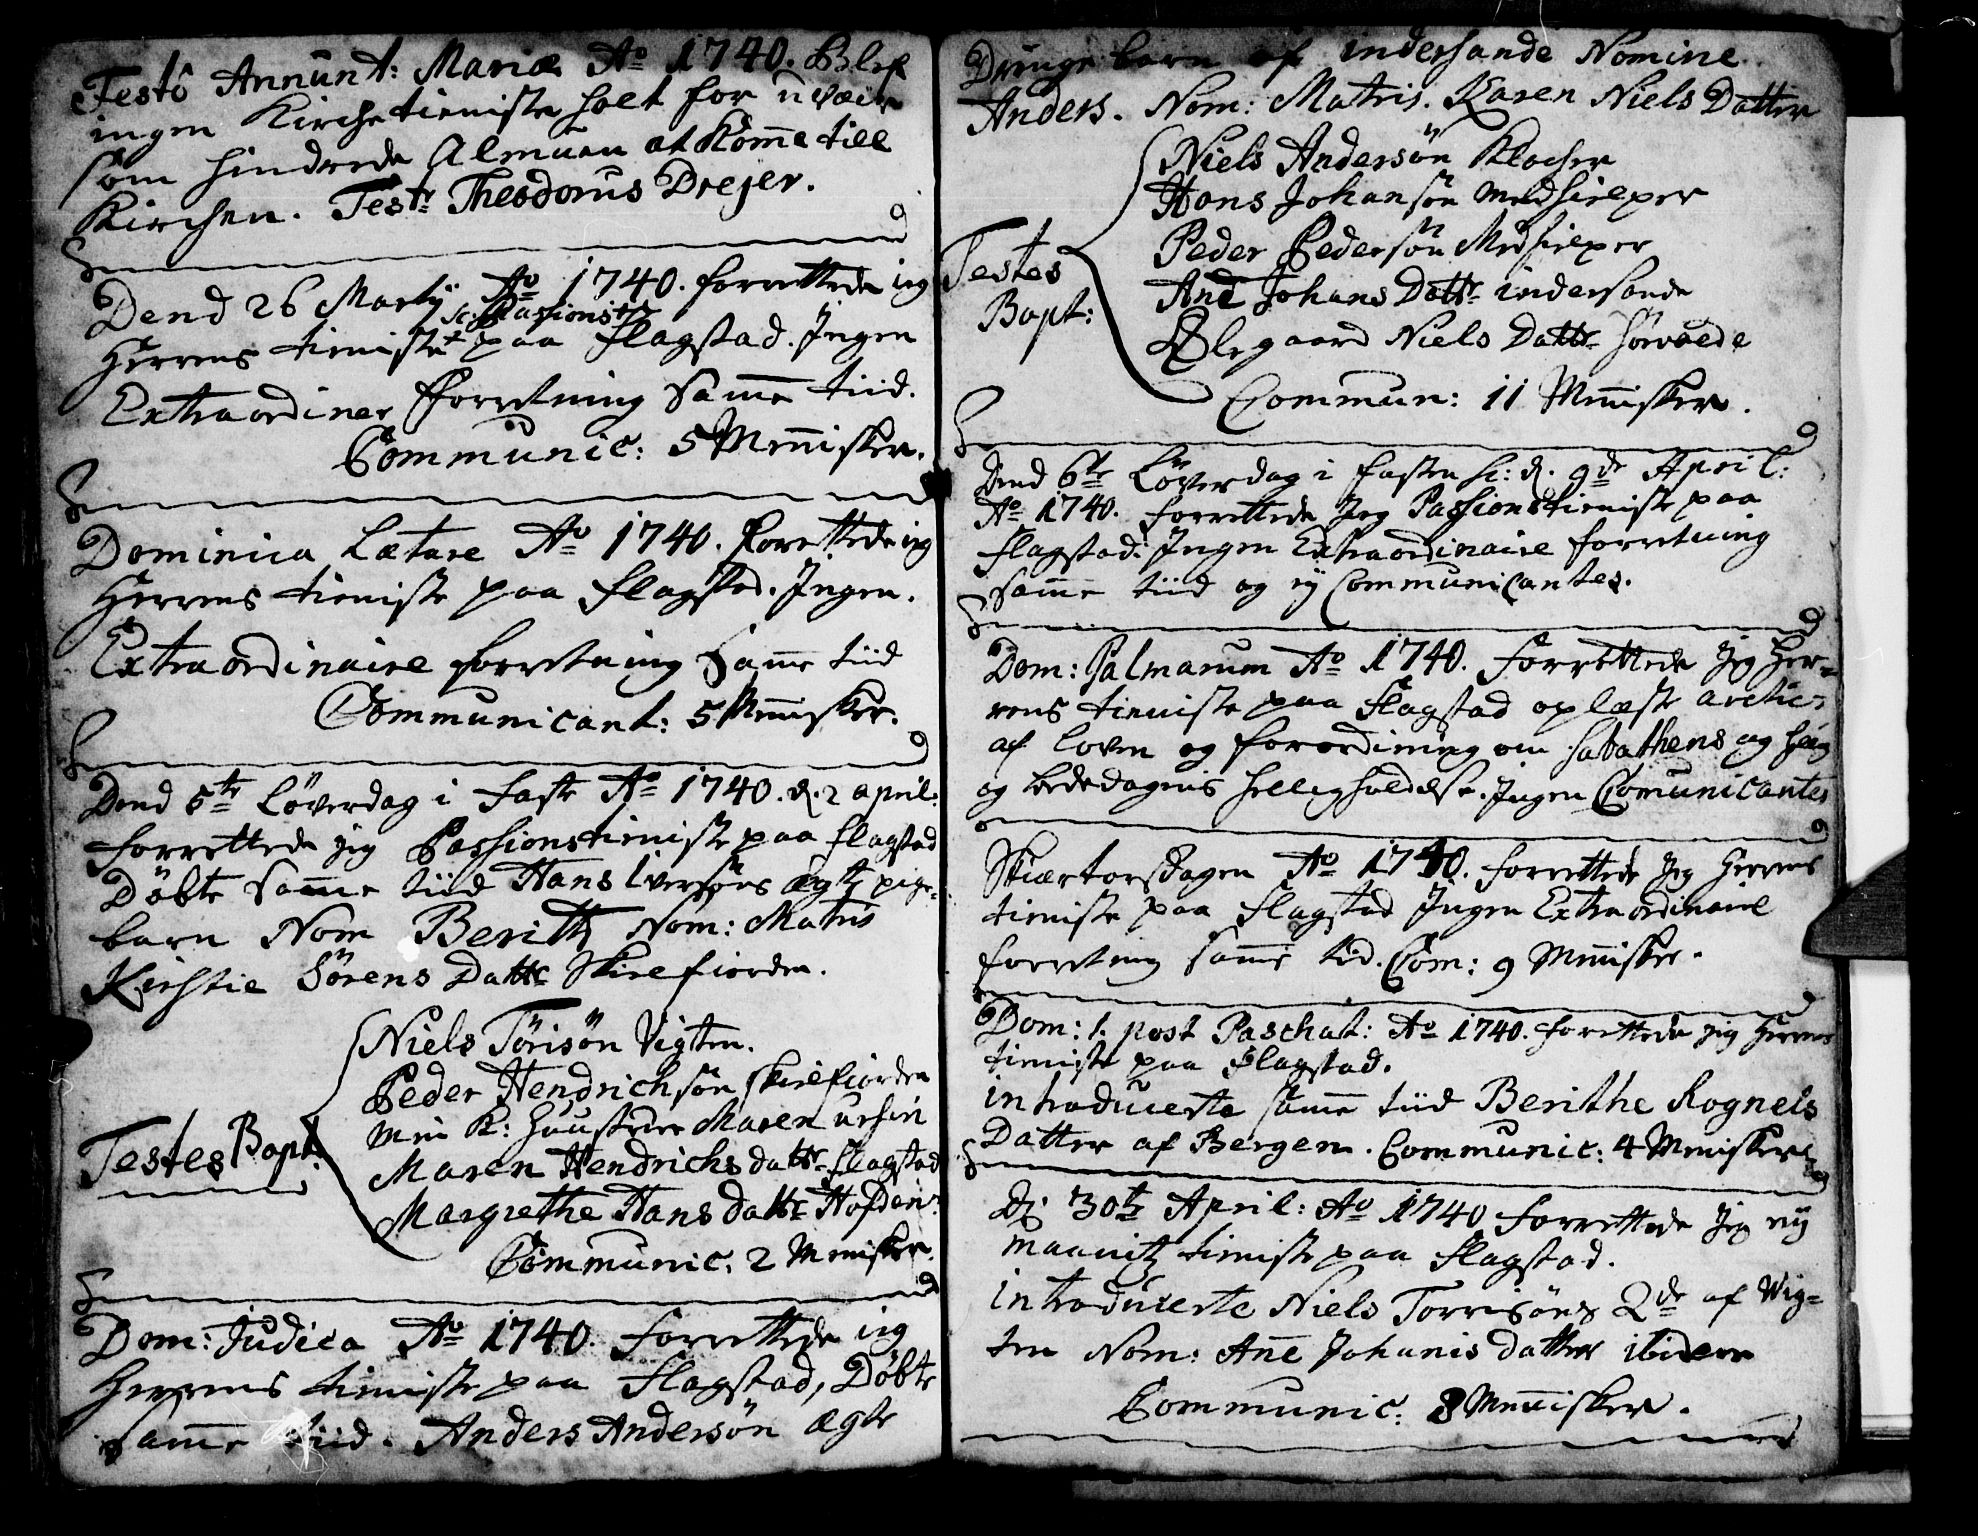 Festô Annunt: Mariæ Aº 1740. Blef
ingen Kirche tieniste holt for uvæir
som hindrede Almuen at komme till
Kirchen. Test: Theodorus Drejer.
Dend 26 Martÿ Aº 1740. forrettede ieg
Sc: Passions
Herrens tieniste paa Flagstad. Ingen
Extraordiner Forretning samme tiid.
Communic: 5 Mennisker.
Dominica Lætare Aº 1740. Forrettede ieg
Herrens tieniste paa Flagstad. Ingen.
Extraordinaire forretning samme tiid
Communicant: 5 Mennisker.
Dend 5te Løverdag i faste Aº 1740. d. 2 april:
forrettede jeg Passions tieniste paa Flagstad
Døbte samme tiid Hans Iversøns ægte pige-
barn Nom Berith Nom: Matris
Kirstie Sørens Datter Skirefiorden.
Niels Törisön Vigten.
Peder Hendrichsøn Skirefiorden
Min K: Huustroe Maren Ursin
Testes Bapt:
Maren Hendrichs datter Flagstad
Margrethe Hans datter Hofden:
Communic: 2 Mennisker.
Dom: Judica Aº 1740 forrettede ieg
Herrens tieniste paa Flagstad, Døbte
samme tiid. Anders Andersøn ægte
Drenge barn af indersande Nomine
Anders. Nom: Matris. Karen Niels Datter
Niels Andersøn Klocher
Hans Johansøn Medhielper
Peder Pedersøn Medhielper
Testes
Bapt:
Ane Johans Datter indersande
Ølegaard Niels Datter
Commun: 11 Mennisker.
Dend 6te Løverdag i fasten sc: d. 9de April:
Aº 1740. forrettede Jeg Passions tieniste paa
Flagstad: Ingen Extraordinaire forretning
samme tiid og ej Communicantes.
Dom: Palmarum Aº 1740. forrettede Jeg Her-
rens tieniste paa Flagstad oplæste artic-
af loven og forordining om sabathens og
og bededagenis helligholdelse. Ingen Comunicantes
Skiertorsdagen Aº 1740. forrettede Jeg Herrens
tieniste paa Flagstad Ingen Extraordinaire
forretning samme tid. Com: 9 Mennisker.
Dom: 1. post Paschat: Aº 1740. forrettede jeg Herrens
tieniste paa Flagstad.
introducerte samme tiid Berithe Rognels
Datter af Bergen. Communic: 4 Mennisker
D: 30te April: Aº 1740 forrettede Jeg nÿ
maanitz tieniste paa Flagstad.
introducerte Niels Torrisøns Qde af Wig-
ten Nom: Ane Johanis datter ibidem
Communic: 8 Mennisker.